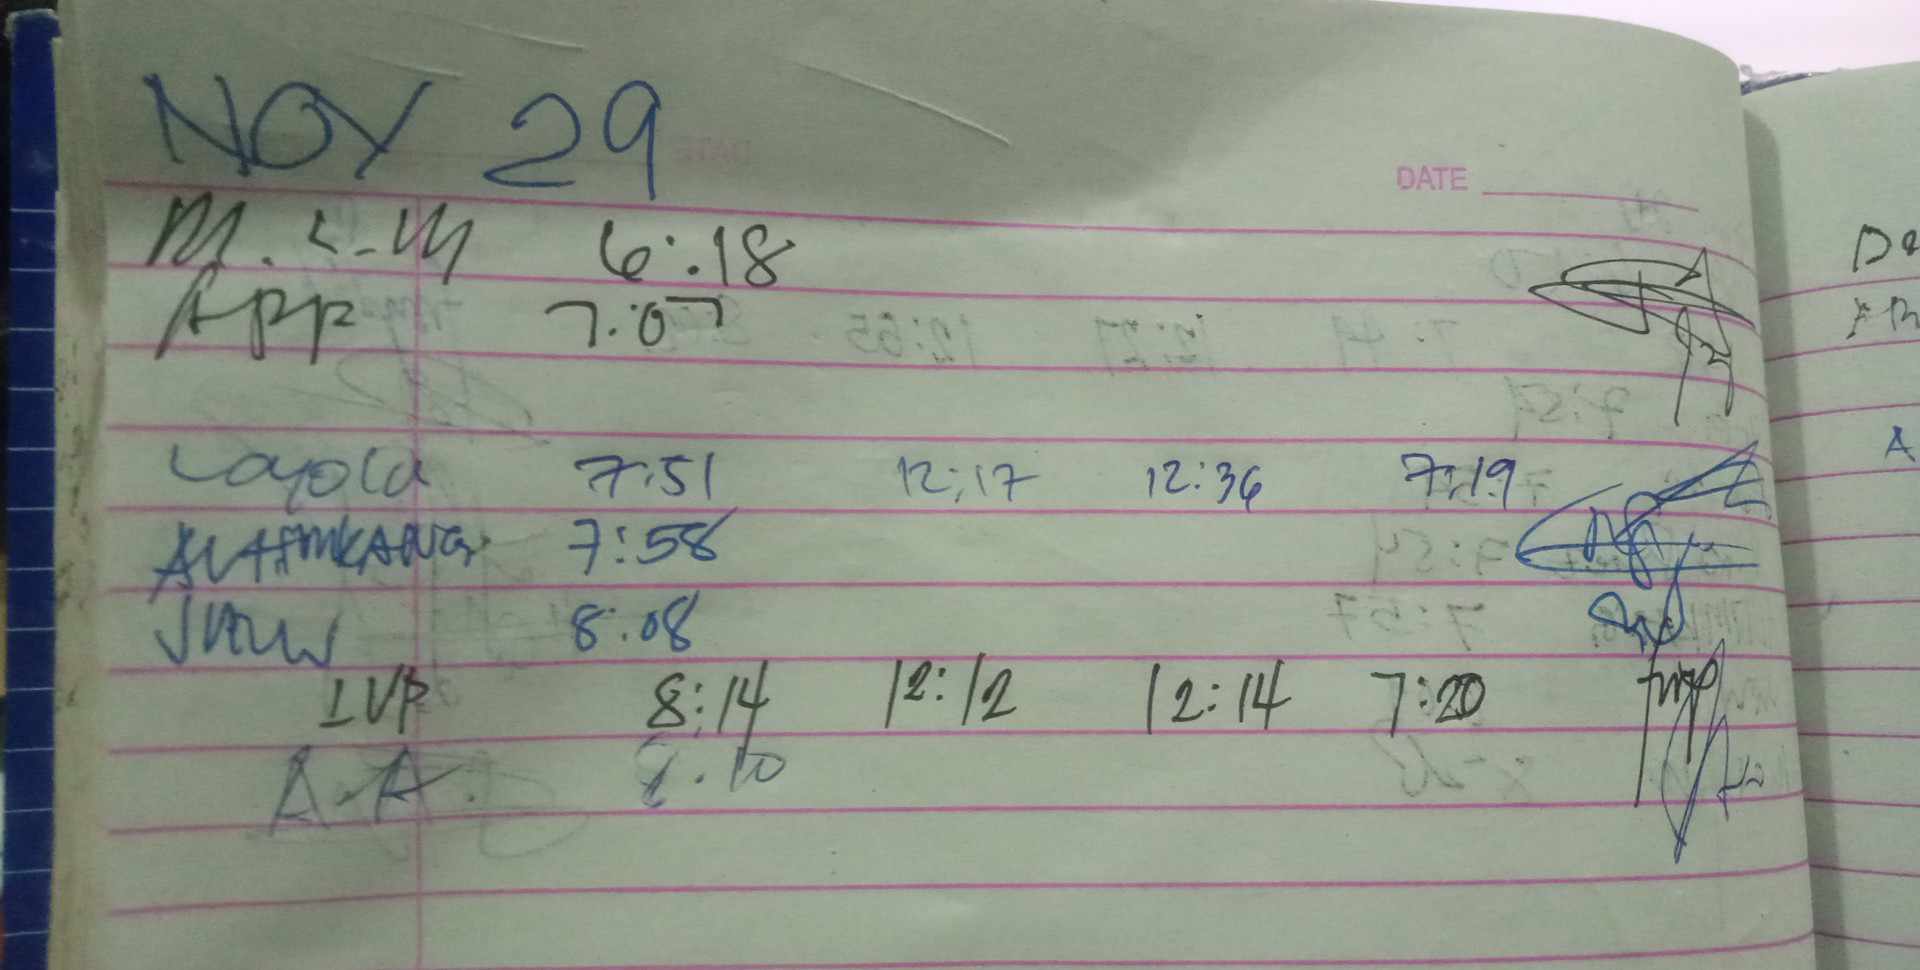 NOV 29
DATE
M.L.M 6:18
App 7:07
Loyola 7:51 12:17 12:36 7:19
7:58
8:08
IVP 8:14 12:12 12:14 7:20
A.A. 8.10